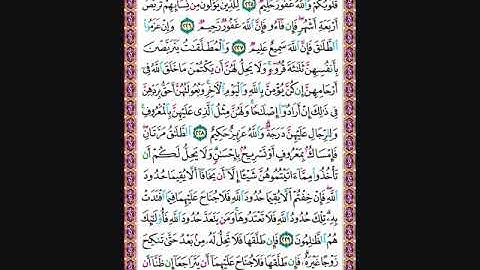 قُلُوبُكُمْ وَاللَّهُ غَفُورٌ حَلِيمٌ ٢٢٥ لِّلَّذِينَ يُؤْلُونَ مِن نِّسَائِهِمْ تَرَبُّصُ
أَرْبَعَةِ أَشْهُرٍ فَإِن فَاءُو فَإِنَّ اللَّهَ غَفُورٌ رَّحِيمٌ ٢٢٦ وَإِنْ عَزَمُوا
الطَّلَاقَ فَإِنَّ اللَّهَ سَمِيعٌ عَلِيمٌ ٢٢٧ وَالْمُطَلَّقَاتُ يَتَرَبَّصْنَ
بِأَنفُسِهِنَّ ثَلَاثَةَ قُرُوءٍ وَلَا يَحِلُّ لَهُنَّ أَن يَكْتُمْنَ مَا خَلَقَ اللَّهُ فِي
أَرْحَامِهِنَّ إِن كُنَّ يُؤْمِنَّ بِاللَّهِ وَالْيَوْمِ الْآخِرِ وَبُعُولَتُهُنَّ أَحَقُّ بِرَدِّهِنَّ
فِي ذَٰلِكَ إِنْ أَرَادُوا إِصْلَاحًا وَلَهُنَّ مِثْلُ الَّذِي عَلَيْهِنَّ بِالْمَعْرُوفِ
وَلِلرِّجَالِ عَلَيْهِنَّ دَرَجَةٌ وَاللَّهُ عَزِيزٌ حَكِيمٌ ٢٢٨ الطَّلَاقُ مَرَّتَانِ
فَإِمْسَاكٌ بِمَعْرُوفٍ أَوْ تَسْرِيحٌ بِإِحْسَانٍ وَلَا يَحِلُّ لَكُمْ أَن
تَأْخُذُوا مِمَّا آتَيْتُمُوهُنَّ شَيْئًا إِلَّا أَن يَخَافَا أَلَّا يُقِيمَا حُدُودَ
اللَّهِ فَإِنْ خِفْتُمْ أَلَّا يُقِيمَا حُدُودَ اللَّهِ فَلَا جُنَاحَ عَلَيْهِمَا فِيمَا افْتَدَتْ
بِهِ تِلْكَ حُدُودُ اللَّهِ فَلَا تَعْتَدُوهَا وَمَن يَتَعَدَّ حُدُودَ اللَّهِ فَأُولَٰئِكَ
هُمُ الظَّالِمُونَ ٢٢٩ فَإِن طَلَّقَهَا فَلَا تَحِلُّ لَهُ مِن بَعْدُ حَتَّىٰ تَنكِحَ
زَوْجًا غَيْرَهُ فَإِن طَلَّقَهَا فَلَا جُنَاحَ عَلَيْهِمَا أَن يَتَرَاجَعَا إِن ظَنَّا أَن